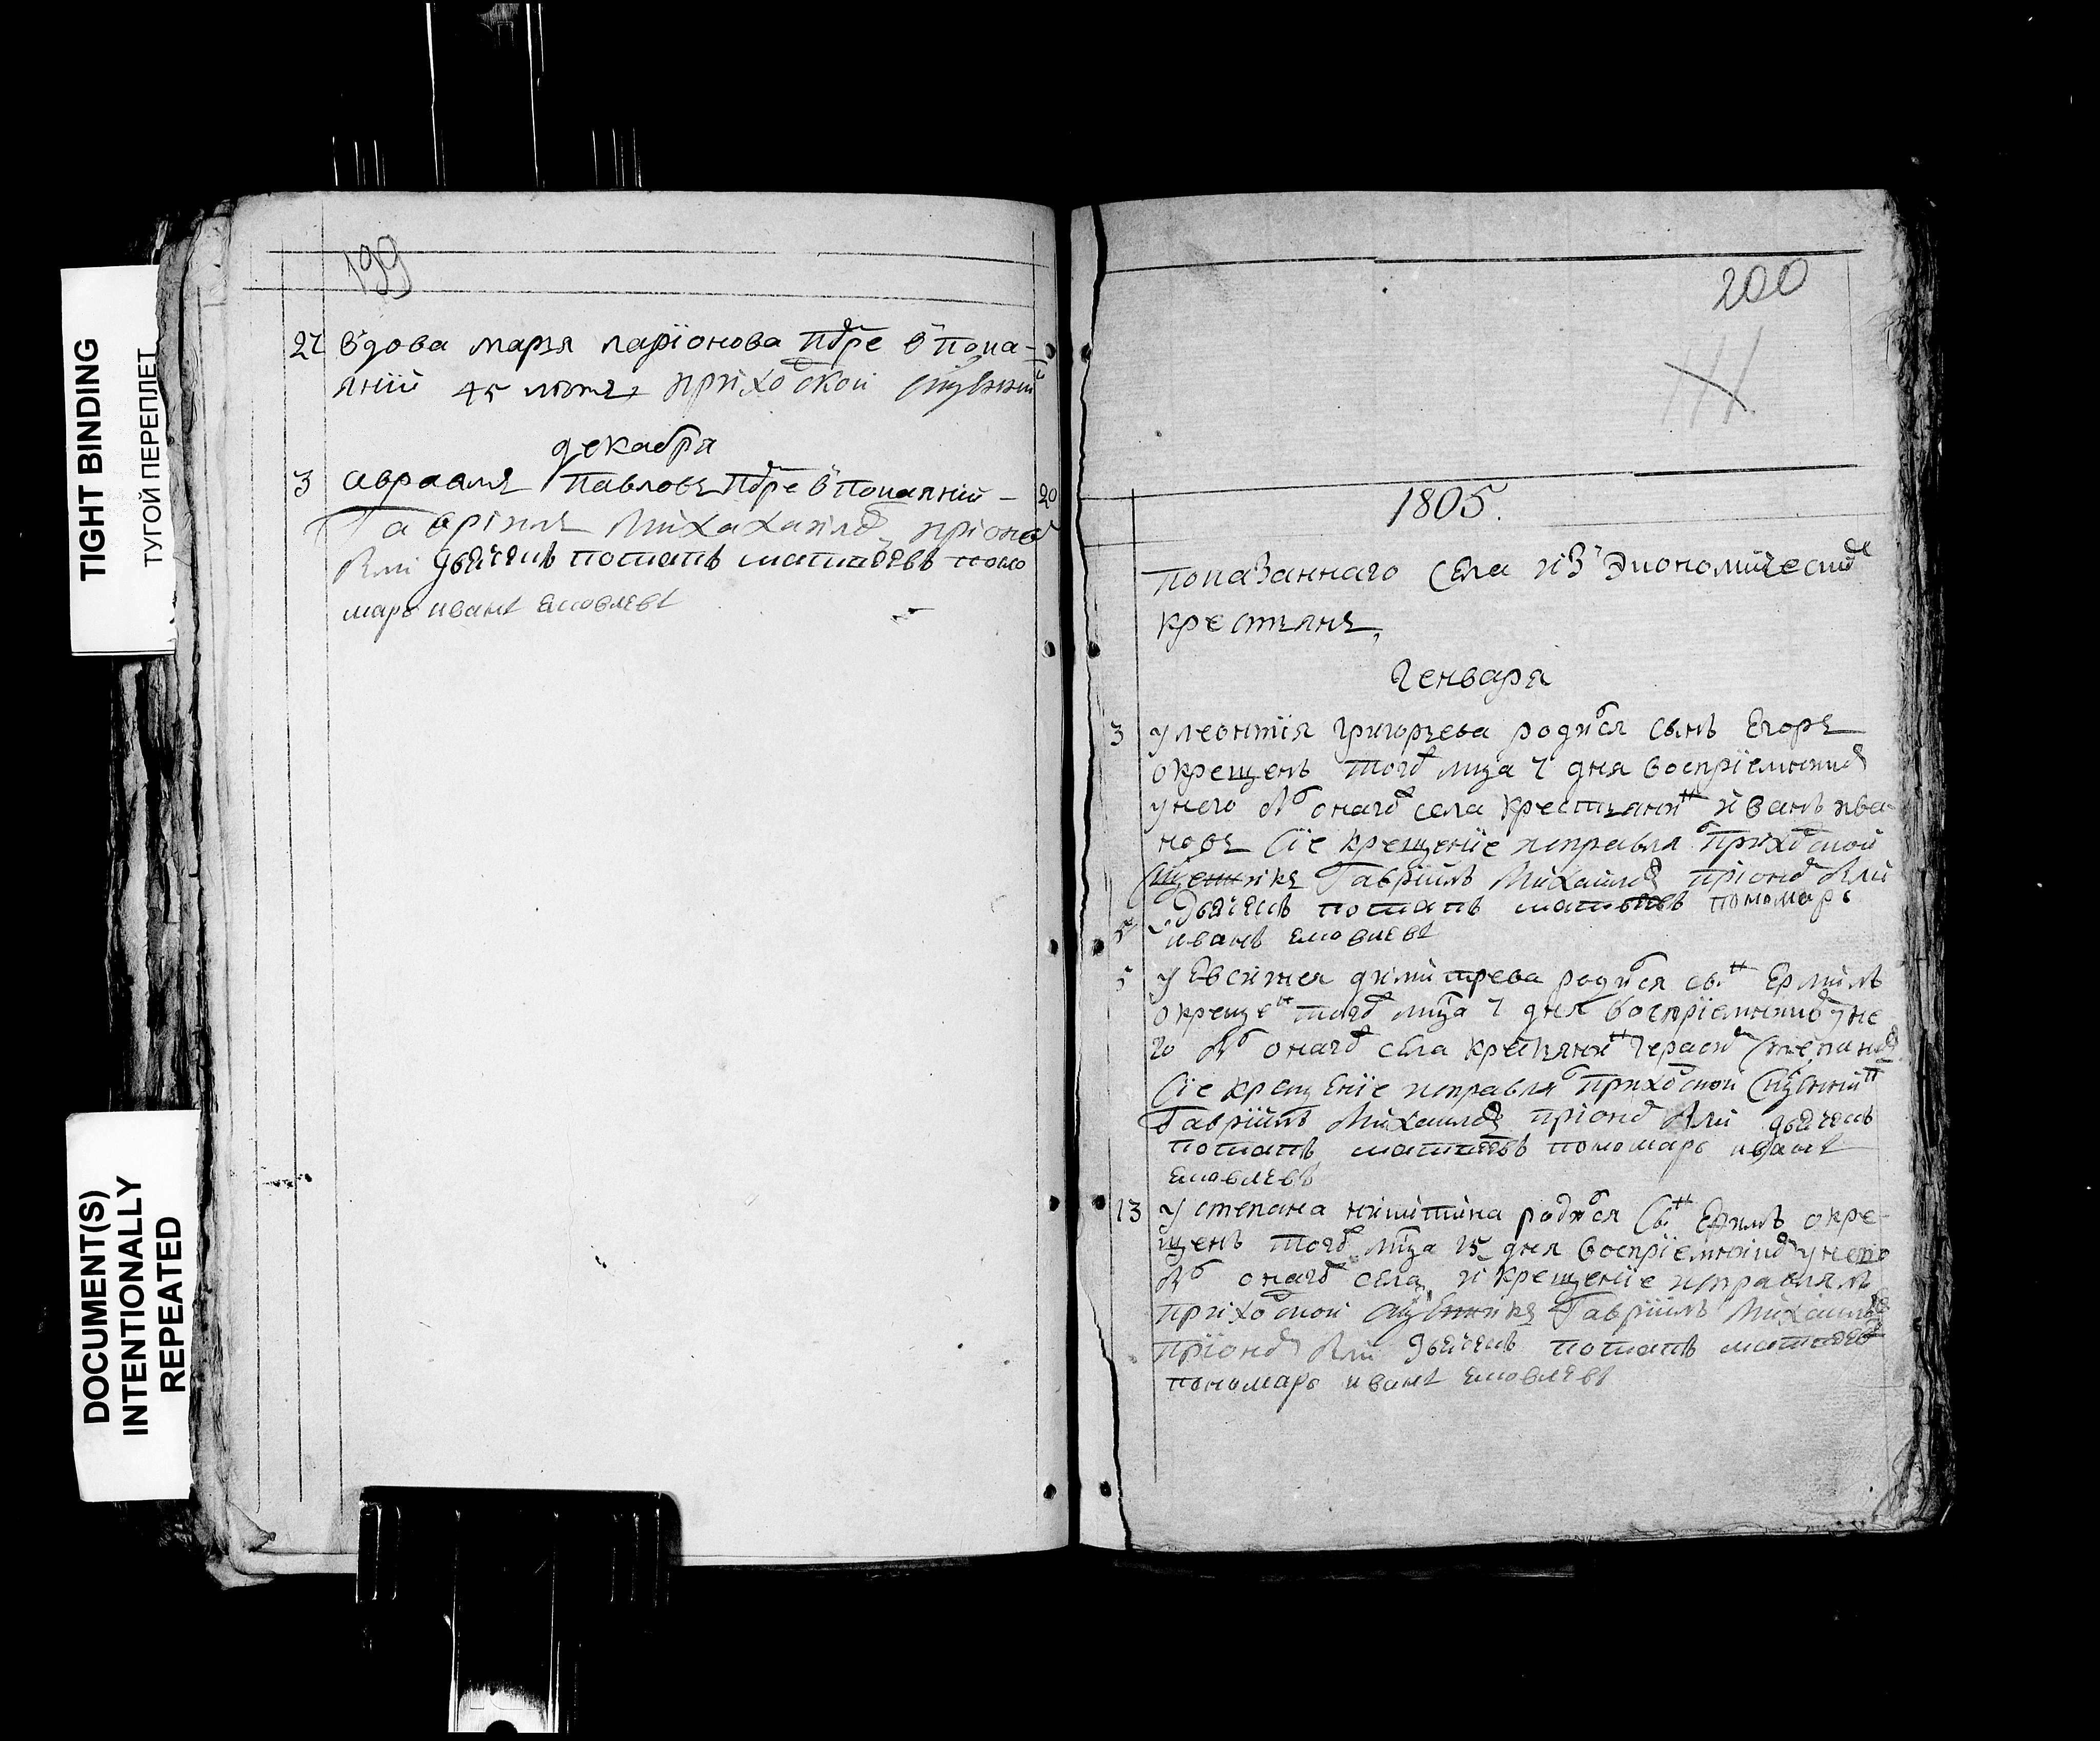 TIGHT BINDING
ТУГОЙ ПЕРЕПЛЕТ
DOCUMENT(S)
INTENTIONALLY
REPEATED
199
27 вдова марья ларіонова пгре в пока-
яніи 45 летъ приходской
декабря
3 авраамъ павловъ пгре в покаяніи - 20
Гавріилъ
дьячекъ потапъ матвѣевъ поно
марь иванъ яковлевъ
200
1805.
показаннаго села изъ экономически
крестьянъ
Генваря
3 у леонтія григорьева родися сынъ Егоръ
окрещенъ тогѡ мца 7 дня воспріемникѡ
у него бы онагѡ села крестьянинъ иванъ ива
новъ сіе крещеніе исправлял приходской
сщенникъ Гавріилъ Михаиловъ
дьячекъ потапъ матвѣевъ пономарь
5 иванъ яковлевъ
5 у Евсигнея димитрева родися сы Ермилъ
окреще тогѡ мца 7 дня воспріемникѡ у не
го бы онагѡ села крестьянин герасим степанов
сіе крещеніе исправлял приходской сщенник
Гавріилъ Михаиловъ дьячекъ
потапъ матвѣевъ пономарь иванъ
яковлевъ
13 у степана никитина родися сы окре-
щенъ тогѡ мца 15 дня воспріемникѡ у него
бы онагѡ села и крещеніе исправлялъ
приходской сщенникъ Гавріилъ Михаиловъ
дьячекъ потапъ матвѣевъ
пономарь иванъ яковлевъ